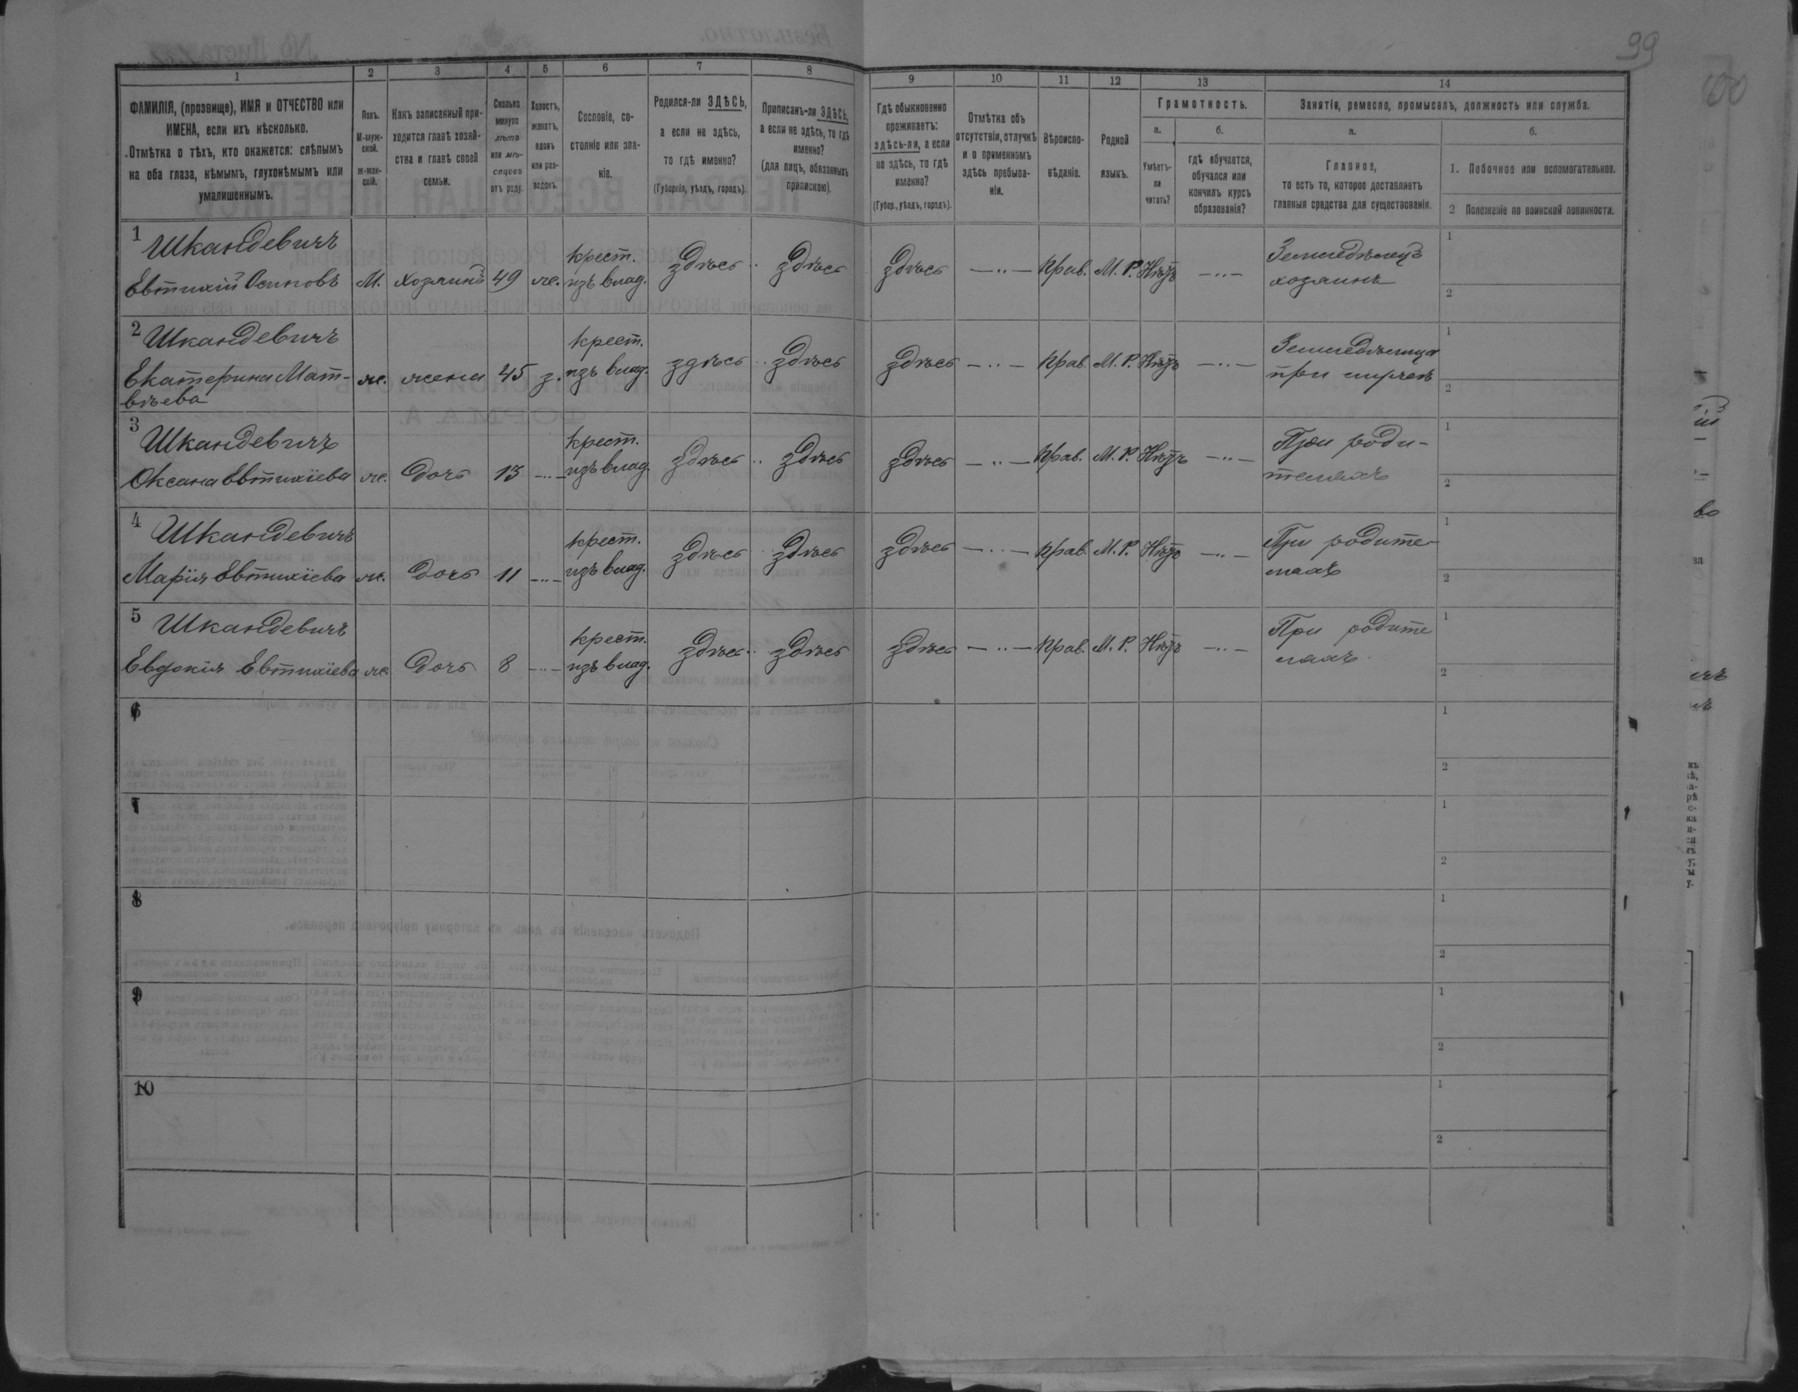 99
100
1
2
3
4
5
6
7
8
9
10
11
12
13
14
ФАМИЛІЯ, (прозвище), ИМЯ и ОТЧЕСТВО или
ИМЕНА, если ихъ нѣсколько.
Отмѣтка о тѣхъ, кто окажется: слѣпымъ
на оба глаза, нѣмымъ, глухонѣмымъ или
умалишеннымъ.
Полъ.
М-муж-
ской.
Ж-жен-
скій.
Какъ записанный при-
ходится главѣ хозяй-
ства и главѣ своей
семьи.
Сколько
минуло
лѣтъ
или мѣ-
сяцевъ
отъ роду.
Холостъ,
женатъ,
вдовъ
или раз-
веденъ.
Сословіе, со-
стояніе или зва-
ніе.
Родился-ли ЗДѢСЬ,
а если не здѣсь,
то гдѣ именно?
(Губернія, уѣздъ, городъ).
Приписанъ-ли ЗДѢСЬ,
а если не здѣсь, то гдѣ
именно?
(для лицъ, обязанныхъ
припискою).
Гдѣ обыкновенно
проживаетъ:
здѣсь-ли, а если
не здѣсь, то гдѣ
именно?
(Губер., уѣздъ, городъ).
Отмѣтка объ
отсутствіи, отлучкѣ
и о временномъ
здѣсь пребыва-
ніи.
Вѣроиспо-
вѣданіе.
Родной
языкъ.
Грамотность.
а.
Умѣетъ-
ли
читать?
б.
гдѣ обучается,
обучался или
кончилъ курсъ
образованія?
Занятія, ремесло, промыселъ, должность или служба.
а.
Главное,
то есть то, которое доставляетъ
главныя средства для существованія.
б.
1. Побочное или вспомогательное.
2 Положеніе по воинской повинности.
1 Шкандевичъ крест. Земледѣлецъ 1
Евтихій Осиповъ М. хозяинъ 49 ж. изъ влад. здѣсь здѣсь здѣсь — .. — Прав. М. Р. Нѣтъ — .. — хозяинъ 2
2 Шкандевичъ крест. Земледѣлица 1
Екатерина Мат- ж. жена 45 з. изъ влад. здѣсь здѣсь здѣсь — .. — Прав. М. Р. Нѣтъ — .. — при мужѣ 2
вѣева
3 Шкандевичъ крест. При роди- 1
Оксана Евтихіева ж. дочь 13 — .. — изъ влад. здѣсь здѣсь здѣсь — .. — Прав. М. Р. Нѣтъ — .. — теляхъ 2
4 Шкандевичъ крест. При родите- 1
Марія Евтихіева ж. дочь 11 — .. — изъ влад. здѣсь здѣсь здѣсь — .. — Прав. М. Р. Нѣтъ — .. — ляхъ 2
5 Шкандевичъ крест. При родите 1
Евдокія Евтихіева ж. дочь 8 — .. — изъ влад. здѣсь здѣсь здѣсь — .. — Прав. М. Р. Нѣтъ — .. — ляхъ 2
6 1
2
7 1
2
8 1
2
9 1
2
10 1
2